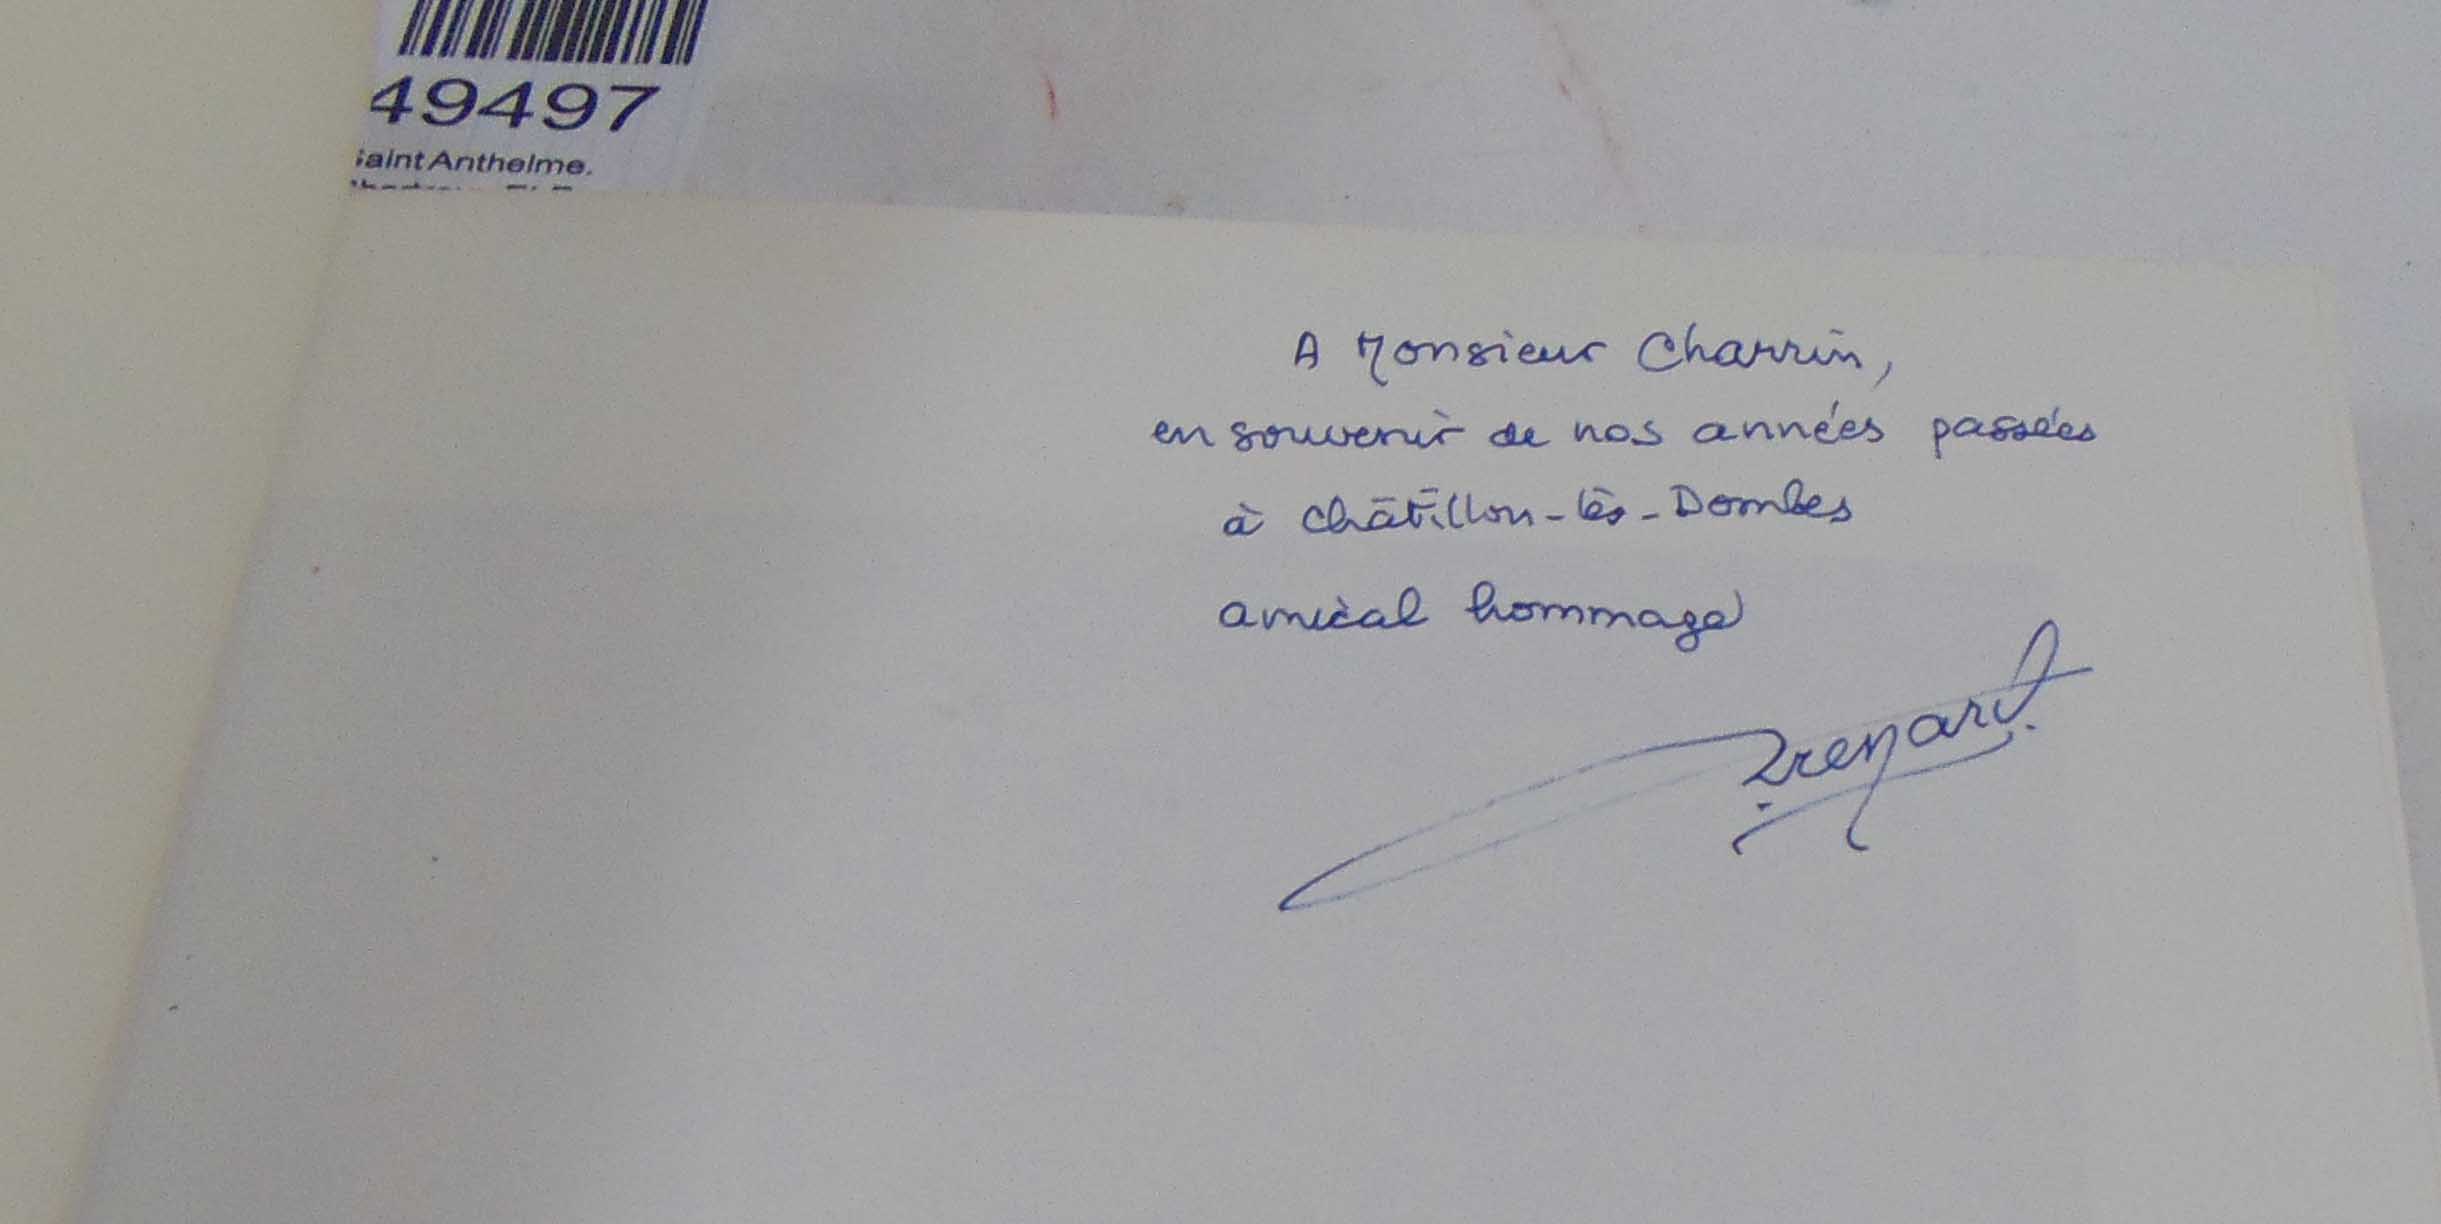 49497
aint Anthelme.
A Monsieur Charrin,
en souvenir de nos années passées
à Châtillon-lès-Dombes
amical hommage
Trenard